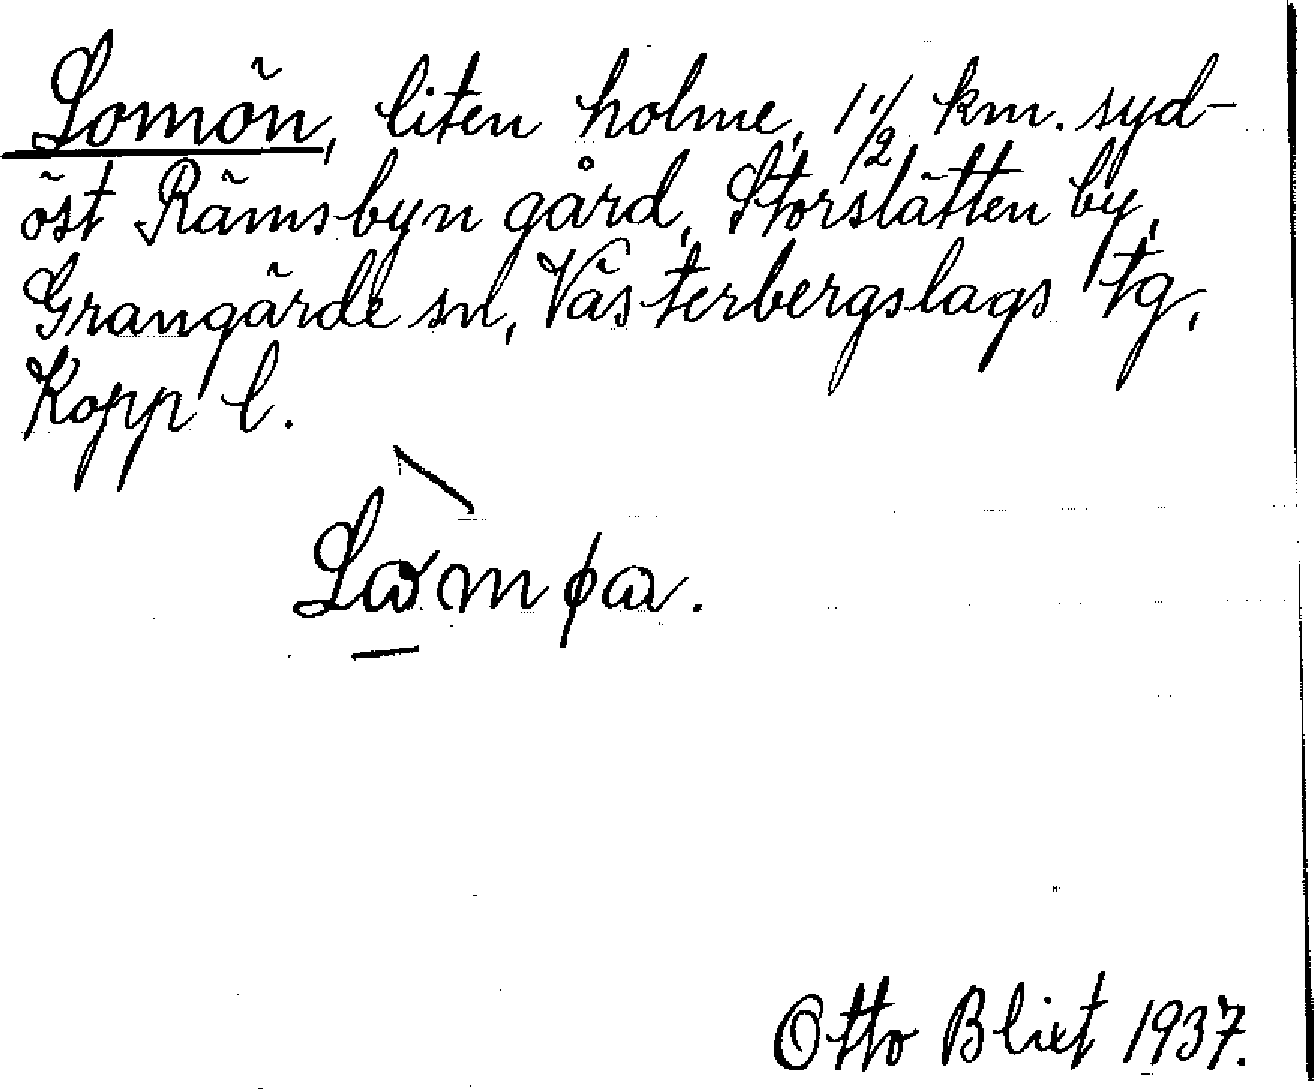 Lomön, liten holme, 1 1/2 km. syd-
öst Rämsbyn gård, Storslätten by,
Grangärde sn, Västerbergslags tg,
Kopp l.
Otto Blixt 1937.